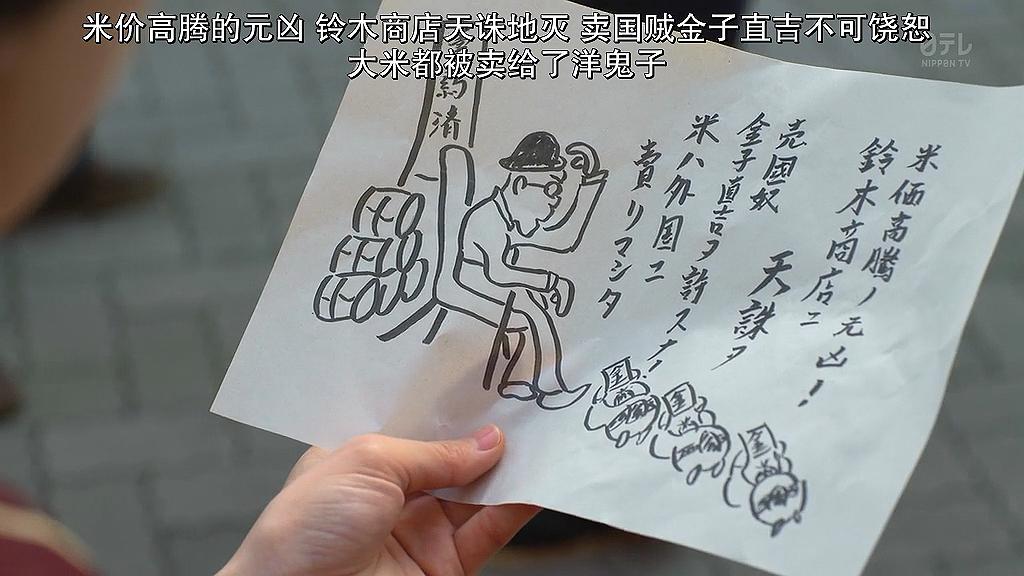 米价高腾的元凶 铃木商店天诛地灭 卖国贼金子直吉不可饶恕
大米都被卖给了洋鬼子
日テレ
NIPPON TV
米価高騰ノ元凶!
鈴木商店ニ
天誅ヲ
売國奴
金子直吉ヲ許スナ!
米ハ外国ニ
賣リマシタ
約済